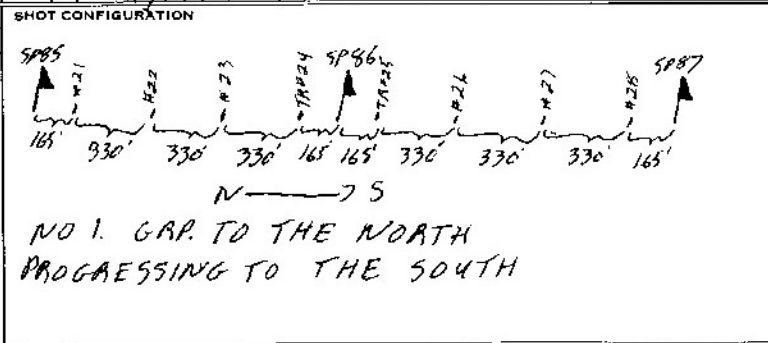 SHOT CONFIGURATION
SP85 #21 #22 #23 TR#24 SP86 TR#25 #26 #27 #28 SP87
165' 330' 330' 330' 165' 165' 330' 330' 330' 165'
N S
NO 1. GRP. TO THE NORTH
PROGRESSING TO THE SOUTH